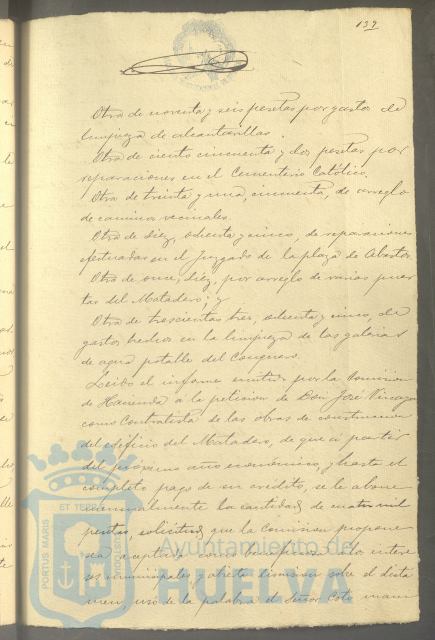 139
Otra de noventa y seis pesetas por gastos de
limpieza de alcantarillas.
Otra de ciento cincuenta y dos pesetas por
reparaciones en el Cementerio Católico.
Otra de treinta y una, cincuenta, de arreglo
de caminos vecinales.
Otra de diez, ochenta y cinco, de reparaciones
efectuadas en el juzgado de la plaza de Abastos
Otra de once, diez, por arreglo de varias puer
tas del Matadero; y
Otra de trescientas tres, ochenta y cinco, de
gastos hechos en la limpieza de las galerias
de agua potable del Conquero.
Leido el informe emitido por la Comision
de Hacienda á la peticion de Don José
como Contratista de las obras de construccion
del edificio del Matadero, de que á partir
del proximo año economico, y hasta el
completo pago de su crédito, se le abone
mensualmente la cantidad de cuatro mil
pesetas, solicitud que la Comision propone
sea aceptada por beneficiosa á los intere
ses municipales, y abierta discusion sobre el dicta
men, usó de la palabra el Señor Coto mani
PORTUS MARIS ET TERRAE CUSTODIA
Ayuntamiento de
HUELVA